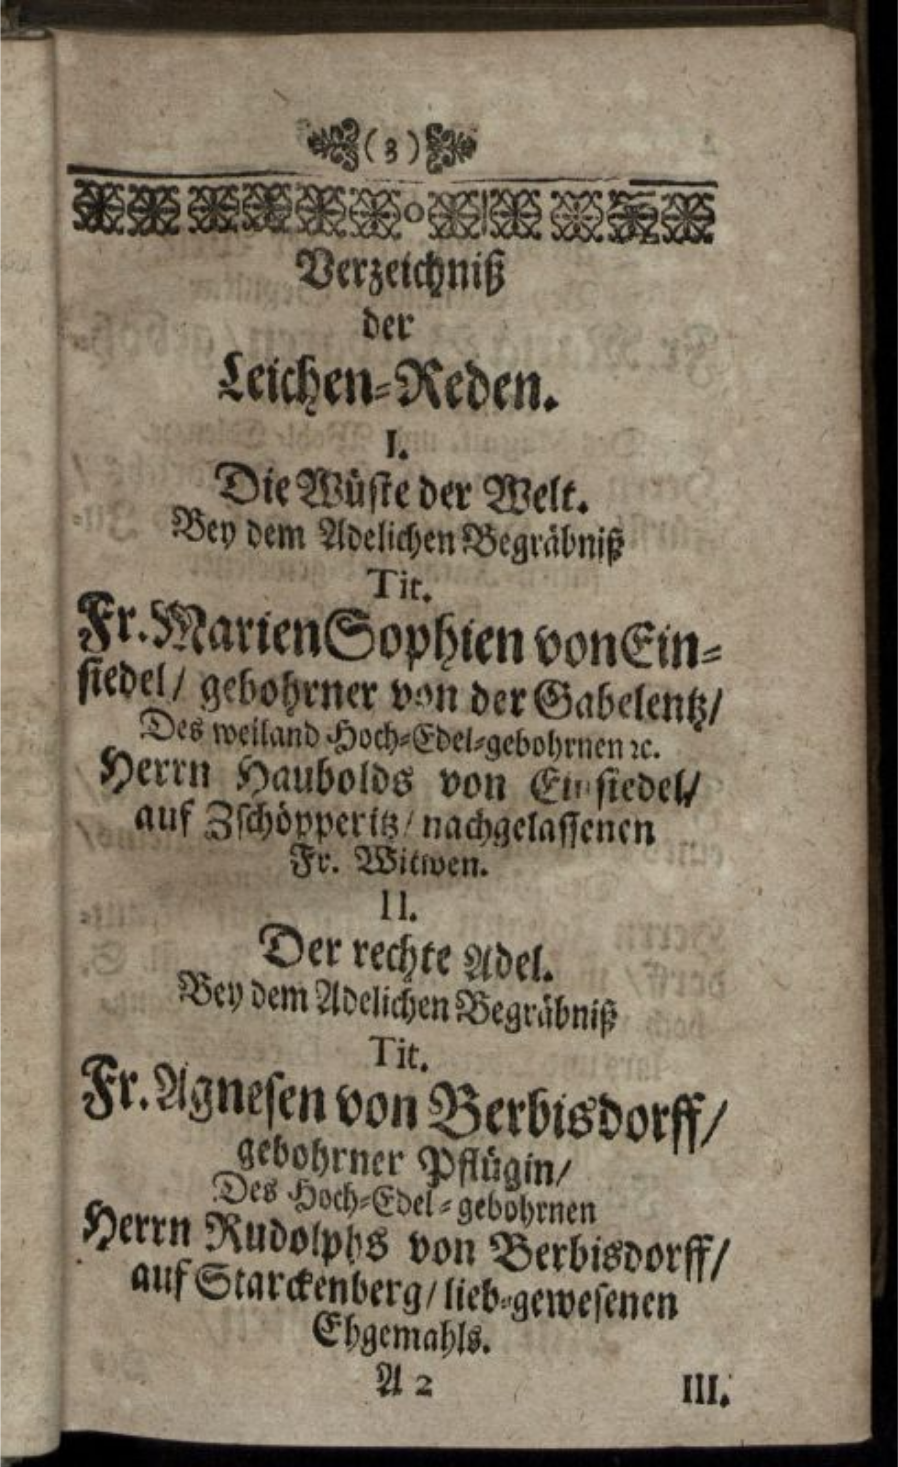 (3)
Verzeichniß
der
Leichen-Reden.
I.
Die Wüste der Welt.
Bey dem Adelichen Begräbniß
Tit.
Fr. Marien Sophien von Ein-
siedel/ gebohrner von der Gabelentz/
Des weiland Hoch-Edel-gebohrnen ꝛc.
Herrn Haubolds von Einsiedel/
auf Zschöpperitz/ nachgelassenen
Fr. Witwen.
II.
Der rechte Adel.
Bey dem Adelichen Begräbniß
Tit.
Fr. Agnesen von Berbisdorff/
gebohrner Pflügin/
Des Hoch-Edel-gebohrnen
Herrn Rudolphs von Berbisdorff/
auf Starckenberg/ lieb-gewesenen
Ehgemahls.
A 2 III.